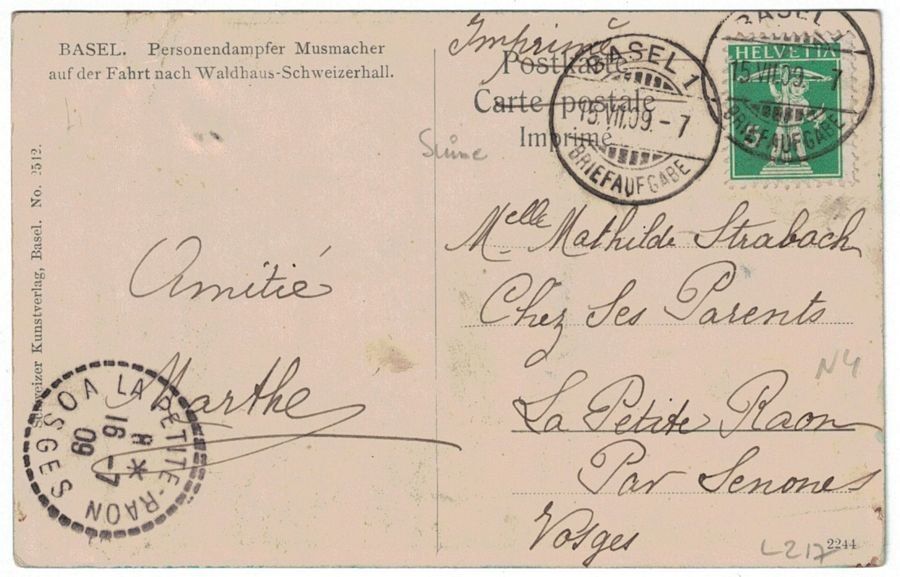 BASEL. Personendampfer Musmacher
auf der Fahrt nach Waldhaus-Schweizerhall.
Imprimé
Postkarte
Carte postale
Imprimé
BASEL 1
15.VII.09.-7
BRIEFAUFGABE
BASEL 1
HELVETIA
15.VII.09.-7
BRIEFAUFGABE
5
Schweizer Kunstverlag, Basel. No. 2512.
Amitié
Marthe
Melle Mathilde Strabach
Chez Ses Parents
La Petite Raon
Par Senones
Vosges
LA PETITE-RAON
16
-7
09
VOSGES
N4
L217
2244